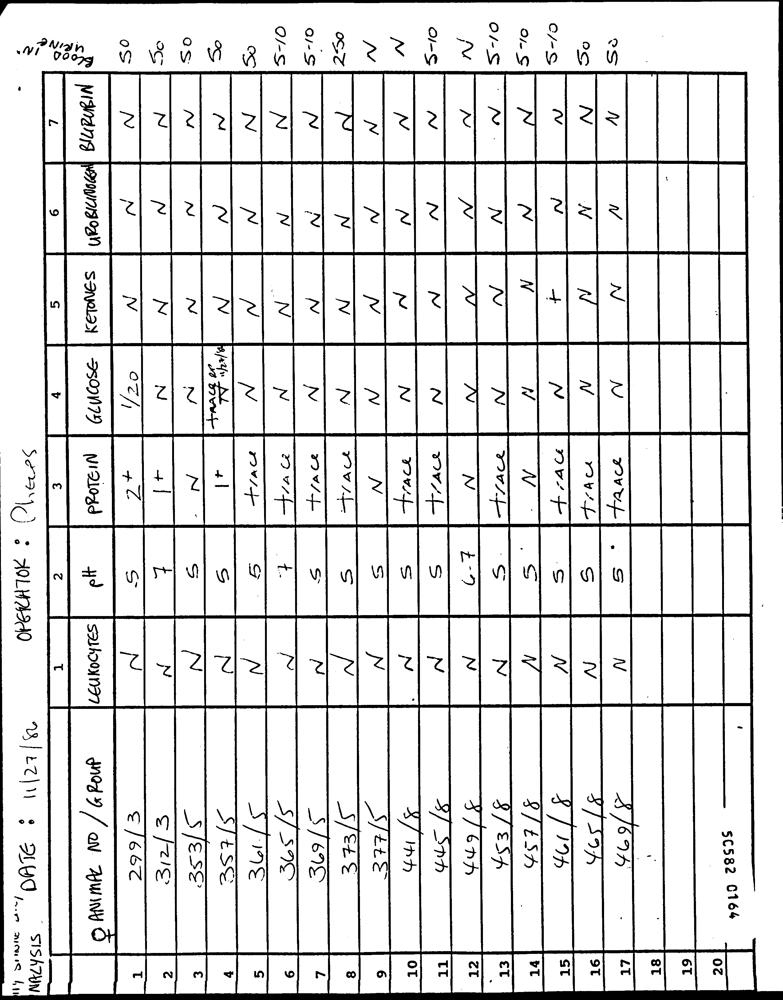 ANALYSIS DATE : 11/27/82 OPERATOR : Phelps
1 2 3 4 5 6 7 BLOOD IN URINE
♀ ANIMAL NO / GROUP LEUKOCYTES pH PROTEIN GLUCOSE KETONES UROBILINOGEN BILIRUBIN
1 299/3 N 5 2+ 1/20 N N N 50
2 312/3 N 7 1+ N N N N 50
3 353/5 N 5 N N N N N 50
4 357/5 N 5 1+ trace N N N N 50
5 361/5 N 5 trace N N N N 50
6 365/5 N 7 trace N N N N 5-10
7 369/5 N 5 trace N N N N 5-10
8 373/5 N 5 trace N N N N 250
9 377/5 N 5 N N N N N N
10 441/8 N 5 trace N N N N N
11 445/8 N 5 trace N N N N 5-10
12 449/8 N 6-7 N N N N N N
13 453/8 N 5 trace N N N N 5-10
14 457/8 N 5 N N N N N 5-10
15 461/8 N 5 trace N + N N 5-10
16 465/8 N 5 trace N N N N 50
17 469/8 N 5 trace N N N N 50
18
19
20
SC582 0164